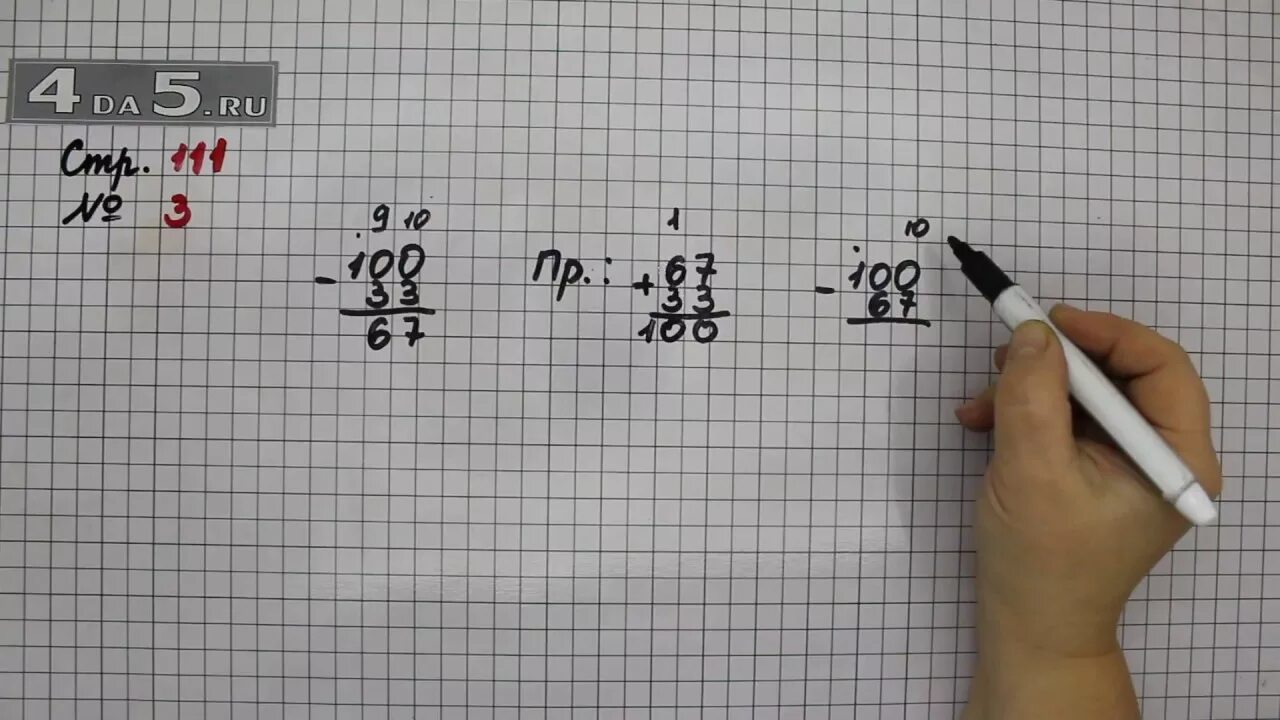 4DA5.RU
Стр. 111
№ 3
9 10
100
- 33
67
Пр.:
1
67
+ 33
100
10
100
- 67